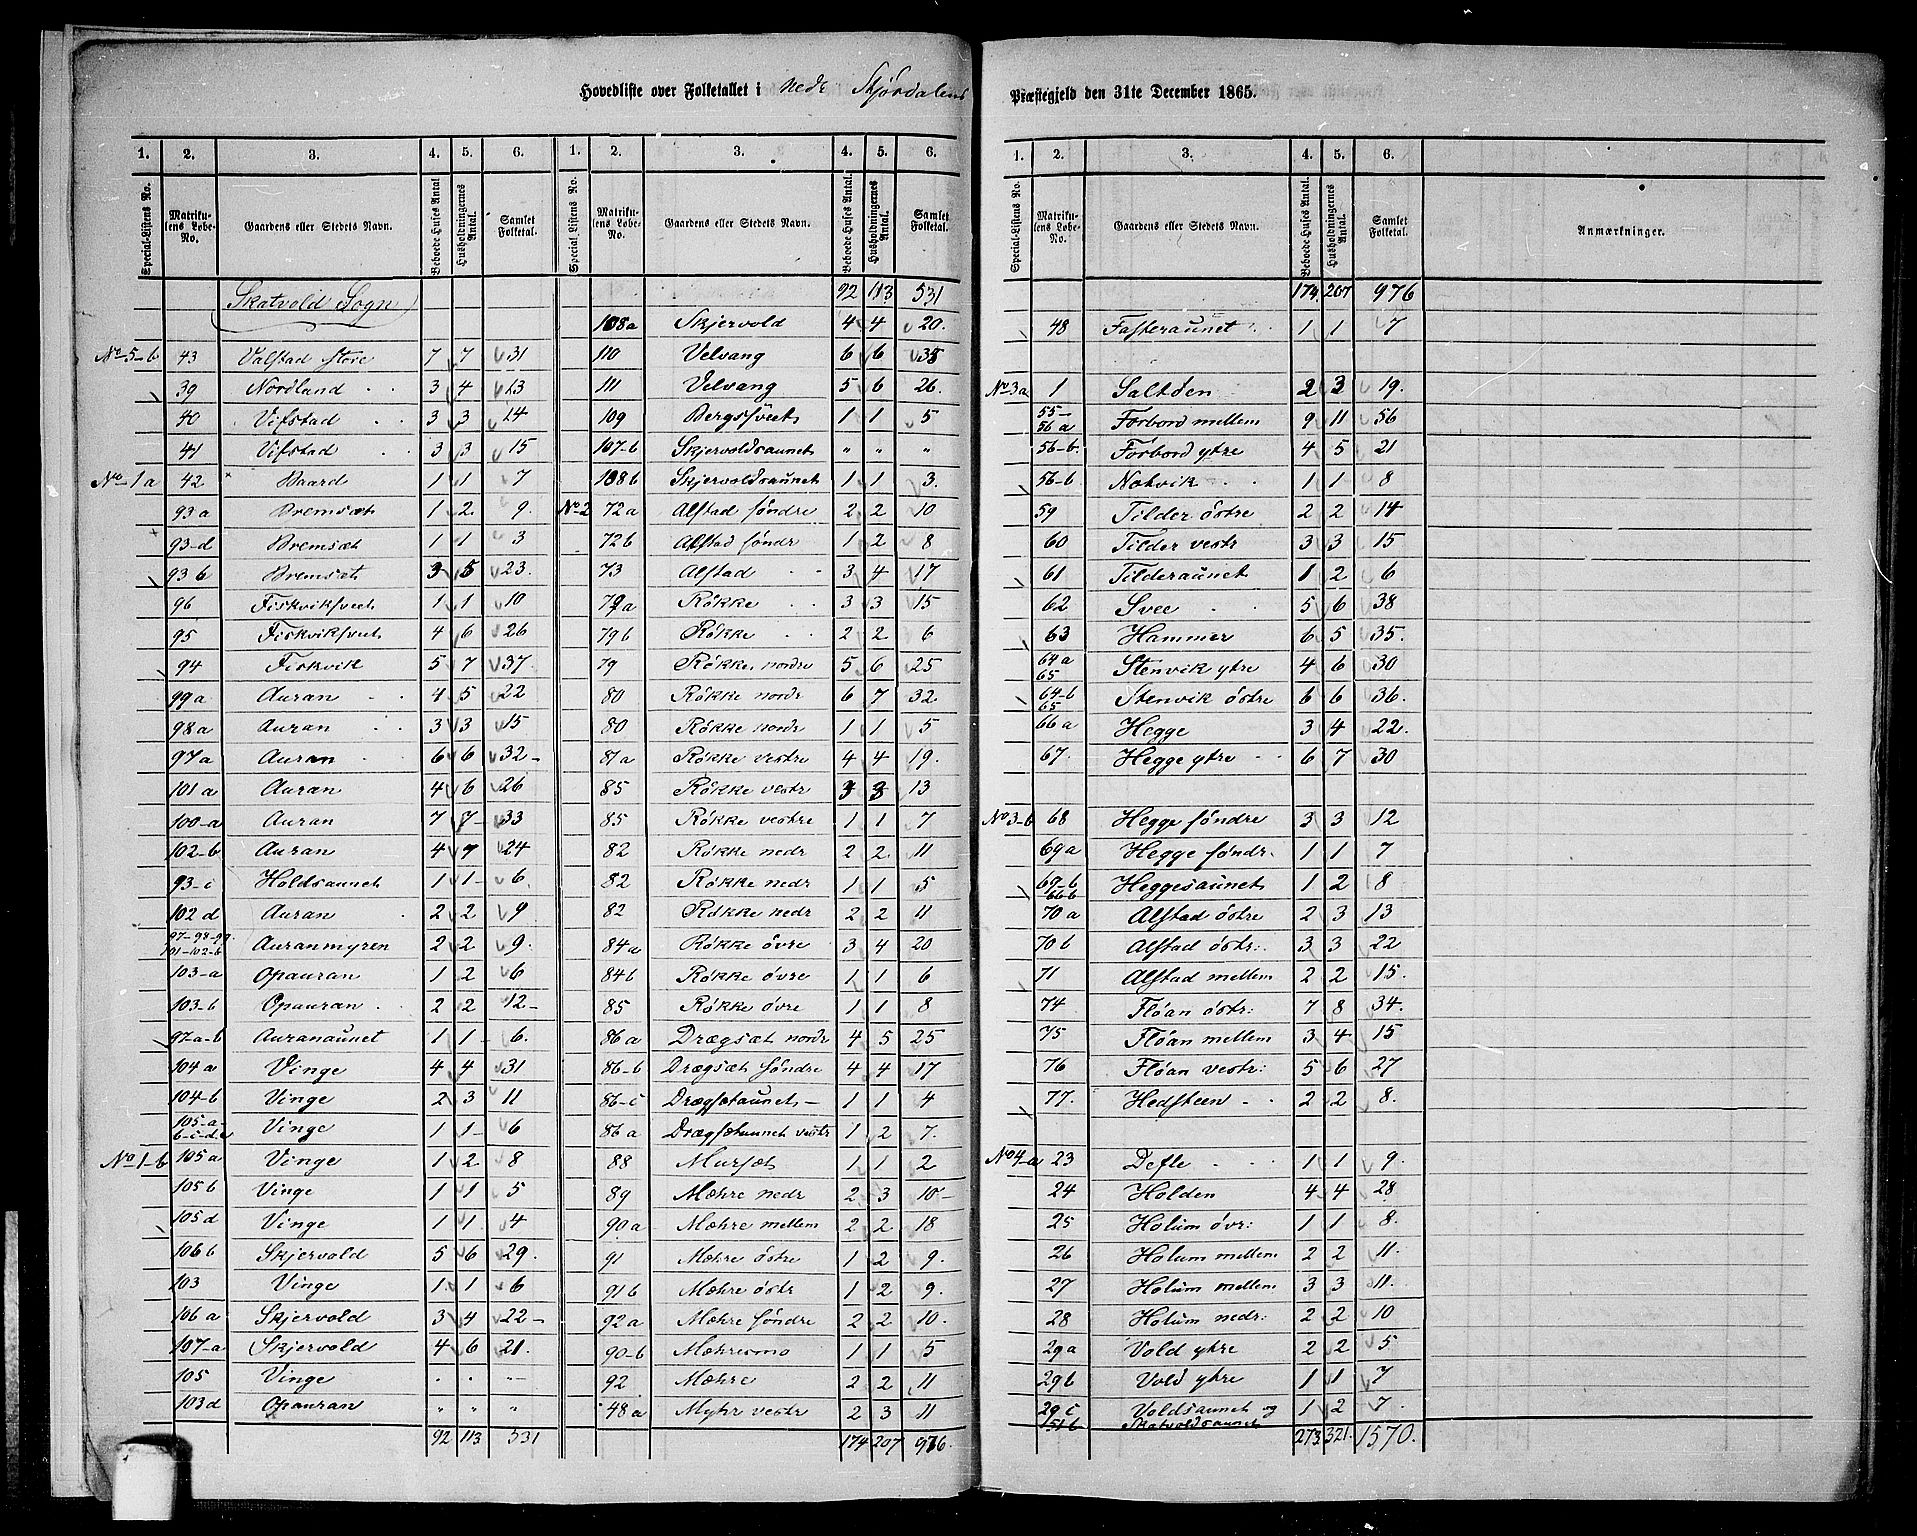 Hovedliste over Folketallet i Nedr Skjørdalens Præstegjeld den 31te December 1865.
1. 2. 3. 4. 5. 6. 1. 2. 3. 4. 5. 6.
Special-Listens No. Matrikulens Løbe-No. Gaardens eller Stedets Navn. Beboede Huses Antal. Husholdningernes Antal. Samlet Folketal. Special Listens No. Matrikulens Løbe-No. Gaardens eller Stedets Navn. Beboede Huses Antal. Husholdningernes Antal. Samlet Folketal.
Skatvold Sogn 92 113 531
108a Skjervold 4 4 20.
No 5-b 43 Valstad store 7 7 31 110 Velvang 6 6 38
39 Nordland 3 4 23 111 Velvang 5 6 26.
40 Vifstad 3 3 24 109 Bergsfvet 1 1 5
41 Vifstad 3 3 15 107-b Skjervoldsaunet " " "
No 1a 42 Baard 1 1 7 108b Skjervoldsaunet 1 1 3.
93a Bremsæt 1 2 9. No 2 72a Alstad søndre 2 2 10
93-d Bremsæt 1 1 3 72b Alstad søndr 1 2 8
93b Bremsæt 3 5 23. 73 Alstad 3 4 17
96 Fiskvikfvet 1 1 10 79a Røkke 3 3 15
95 Fiskvikfvet 4 6 26 79b Røkke 2 2 6
94 Fiskvik 5 7 37. 79 Røkke nordre 5 6 25
99a Auran 4 5 22 80 Røkke nordr 6 7 32.
98a Auran 3 3 15 80 Røkke nordr 1 1 5
97a Auran 6 6 32- 81a Røkke vestre 4 4 19.
101a Auran 4 6 26 85 Røkke vestr 3 3 13
100-a Auran 7 7 33 85 Røkke vestre 1 1 7
102-b Auran 4 7 24 82 Røkke nedr 2 2 11
93-c Holdsaunet 1 1 6. 82 Røkke nedr 1 1 5
102d Auran 2 2 9 82 Røkke nedr 2 2 11
97-98-99. 101-102-b Auranmyren 2 2 9. 84a Røkke øvre 3 4 20
103-a Opauran 1 2 6 84b Røkke øvre 1 1 6
103-b Opauran 2 2 12- 85 Røkke øvre 1 1 8
97-a-b Auranaunet 1 1 6. 86a Drægsæt nordr 4 5 25
104a Vinge 4 4 31 86-b Drægsæt søndre 4 4 17
104-b Vinge 2 3 11 86-c Drægsetaunet 1 1 4
105-a- b-c-d-e Vinge 1 1 6 86a Drægsetaunet vestr 1 2 7.
No 1-b 105a Vinge 1 2 8 88 Mursæt 1 1 2
105b Vinge 1 1 5 89 Mæhre nedr 2 3 10-
105d Vinge 1 1 4 90a Mæhre mellem 2 2 18
106b Skjervold 5 6 29. 91 Mæhre östre 1 2 9.
103 Vinge 1 1 6 91b Mæhre östr 1 2 9.
106a Skjervold 3 4 22- 92a Mæhre søndre 2 2 10.
107-a Skjervold 4 6 21. 90-b Mæhresmo 1 1 5
105 Vinge " " " 92 Mæhre 2 2 11
103d Opauran " " " 48a Myhr vestr 2 3 11
92 113 531 174 207 976.
1. 2. 3. 4. 5. 6.
Special-Listens No. Matrikulens Løbe-No. Gaardens eller Stedets Navn. Beboede Huses Antal. Husholdningernes Antal. Samlet Folketal. Anmærkninger.
174 207 976
48 Fasteraunet 1 1 7
No 3a 1 Saltøen 2 3 19.
55- 56a Forbord mellem 9 11 56
56-b. Forbord ytre 4 5 21
56-b Notvik 1 1 8
59 Tilder östre 2 2 14
60 Tilder vestr 3 3 15
61 Tilderaunet 1 2 6
62 Svee 5 6 38
63 Hammer 6 5 35.
64a 65 Stenvik ytre 4 6 30
64-b 65 Stenvik östre 6 6 36.
66a Hegge 3 4 22.
67. Hegge ytre 6 7 30
No 3-b 68 Hegge söndre 3 3 12
69a Hegge söndr. 1 1 7
69-b 66b Heggesaunet 1 2 8
70a Alstad östre 2 3 13
70b Alstad östr: 3 3 22
71 Alstad mellem 2 2 15.
74 Flöan östr: 7 8 34.
75 Flöan mellem 3 4 15
76 Flöan vestr: 5 6 27
77. Hedsteen 2 2 8.
No 4-a 23 Defle 1 1 9.
24 Holden 4 4 28
25 Holum övr: 1 1 8.
26 Holum mellem 2 2 11.
27 Holum mellem 3 3 11.
28 Holum nedr: 2 2 10
29a Vold ytre 2 2 5
29b Vold ytre 1 1 7
29c 51b Voldsaunet og Skatvoldsaunet 1 2 7.
273 321. 1570.